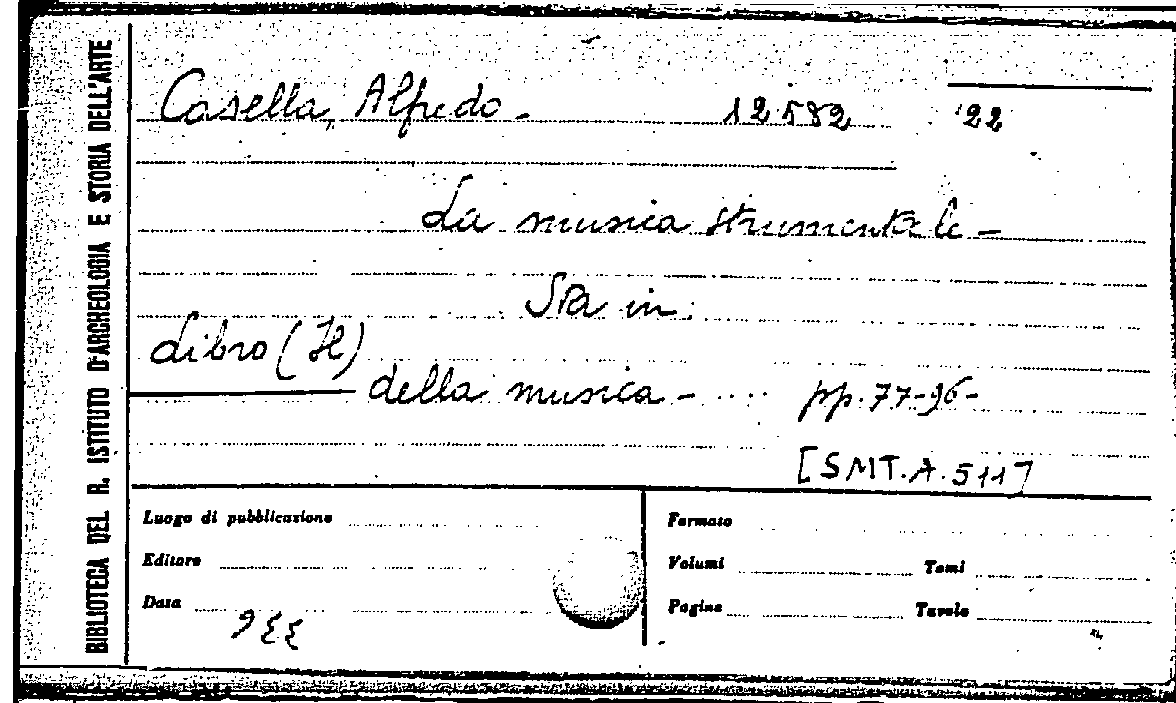 BIBLIOTECA DEL R. ISTITUTO D'ARCHEOLOGIA E STORIA DELL'ARTE
Casella, Alfredo - 12.582 '22
La musica strumentale -
Sta in:
Libro (Il)
della musica - pp. 77-96-
[SMT.A.511]
Luogo di pubblicazione
Formato
Editore
Volumi Tomi
Data
Pagine Tavole